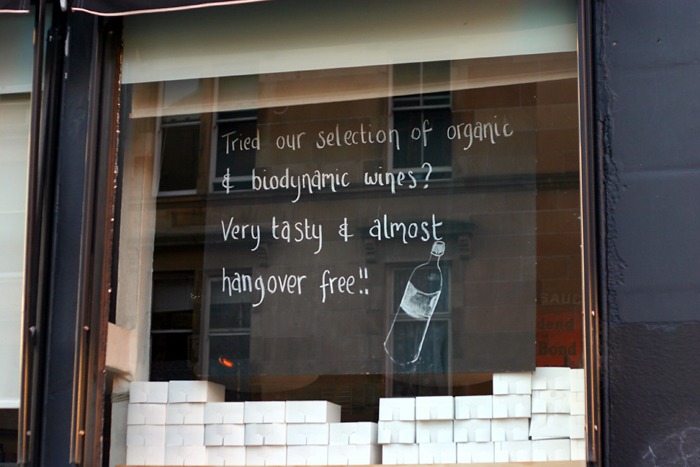 Tried our selection of organic
& biodynamic wines?
Very tasty & almost
hangover free!!